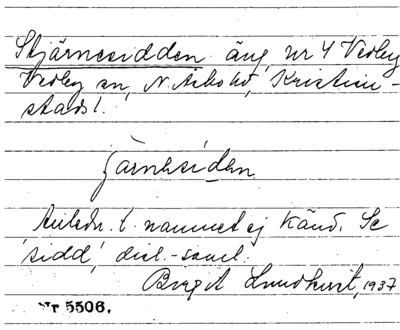 Stjärnesidden äng, nr 4 Verley
Verley sn, N. Åsbo hd, Kristian-
stads l.
järnesiden
Anledn. t. namnet ej känd. Se
'sidd', dial.-saml.
Birgit Lundkvist, 1937
Nr 5506.